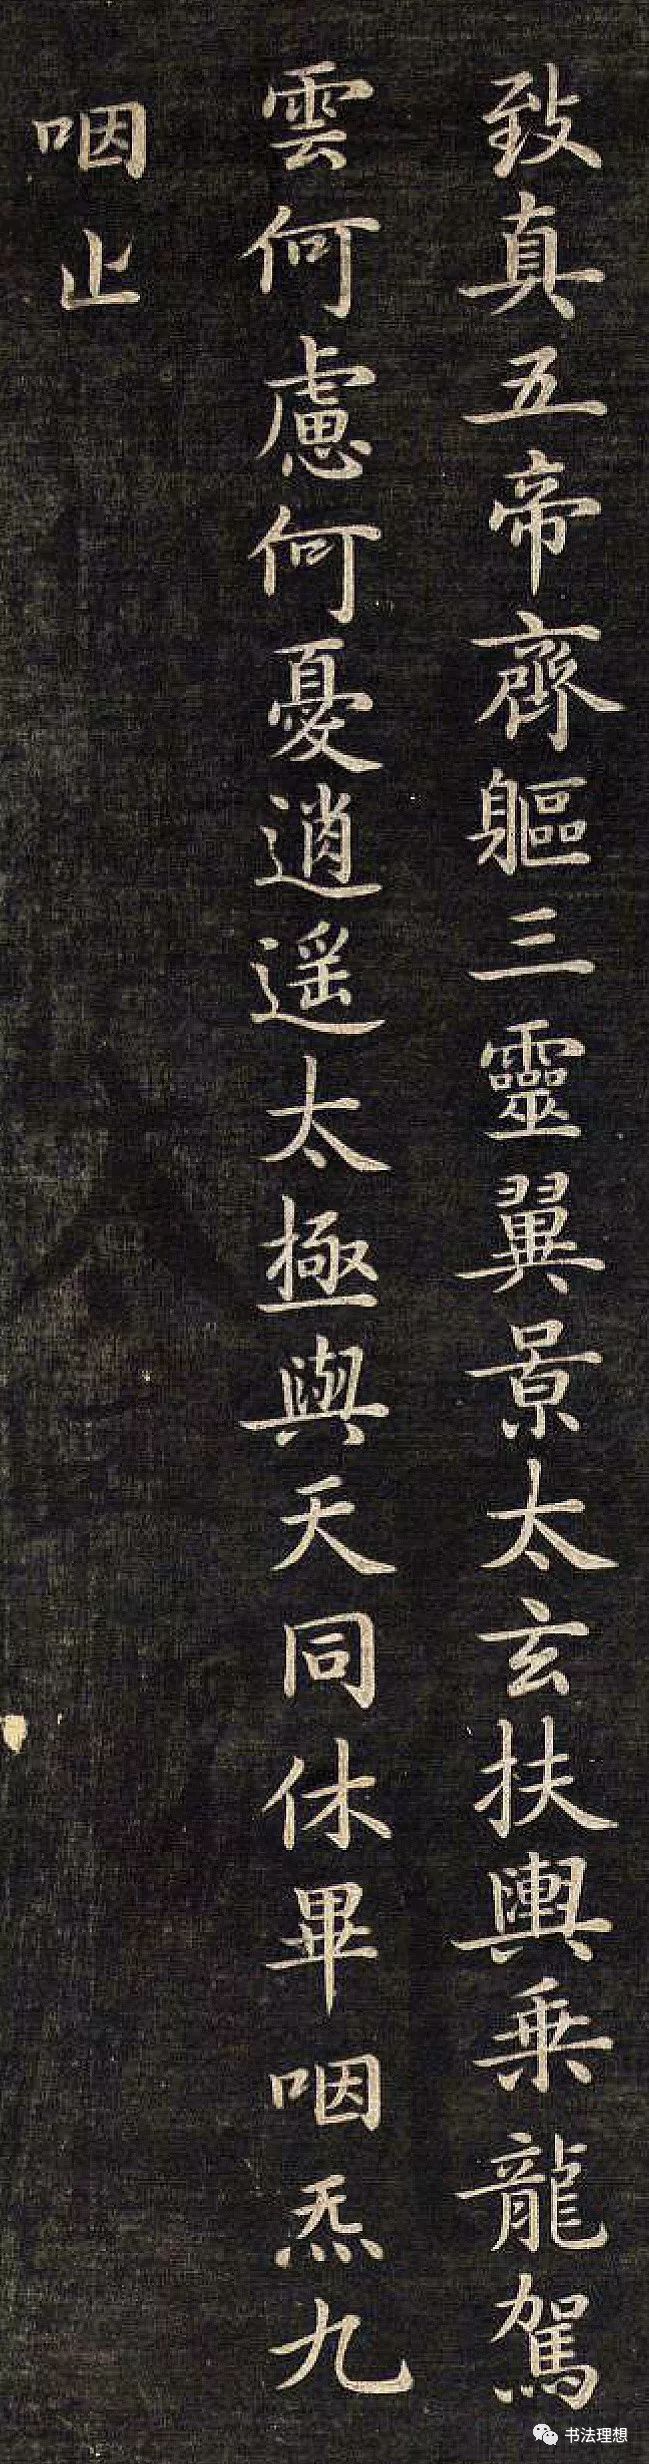 致真五帝齊軀三靈翼景太玄扶輿乗龍駕
雲何慮何憂逍遥太極與天同休畢咽炁九
咽止
书法理想